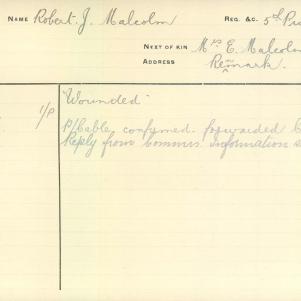 NAME Robert. J. Malcolm REG. &C. 5th
NEXT OF KIN Mrs E. Malcolm
ADDRESS Remark.
1/P "Wounded"
P/Cable, confirmed. forwarded
Reply from Commrs. Information